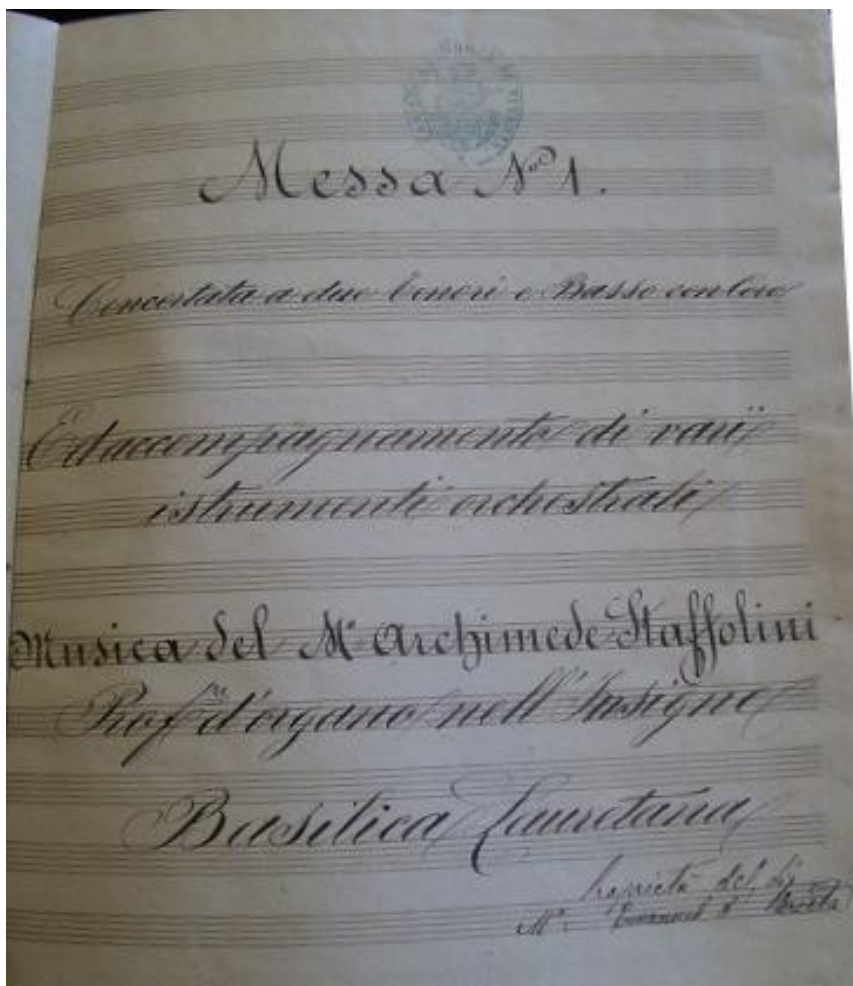 Messa No 1.
Concertata a due tenori e Basso con Coro
Ed accompagnamento di varii
istrumenti orchestrali
Musica del Mo Archimede Staffolini
Profre d'organo nell'Insigne
Basilica Lauretana
Proprietà del Sig
Mo: